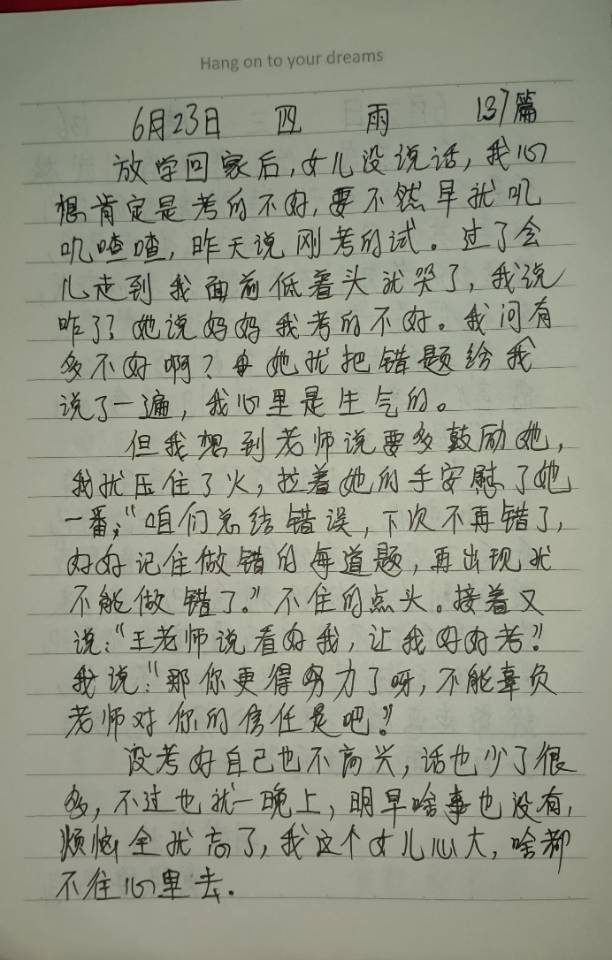 Hang on to your dreams
6月23日 四 雨 137篇
放学回家后，女儿没说话，我心
想肯定是考的不好，要不然早就叽
叽喳喳，昨天说刚考的试。过了会
儿走到我面前低着头就哭了，我说
咋了？她说妈妈我考的不好。我问有
多不好啊？她就把错题给我
说了一遍，我心里是生气的。
但我想到老师说要多鼓励她，
我就压住了火，拉着她的手安慰了她
一番，“咱们总结错误，下次不再错了，
好好记住做错的每道题，再出现就
不能做错了。”不住的点头。接着又
说：“王老师说看好我，让我好好考？”
我说：“那你更得努力了呀，不能辜负
老师对你的信任是吧？”
没考好自己也不高兴，话也少了很
多，不过也就一晚上，明早啥事也没有，
烦恼全就忘了，我这个女儿心大，啥都
不往心里去.